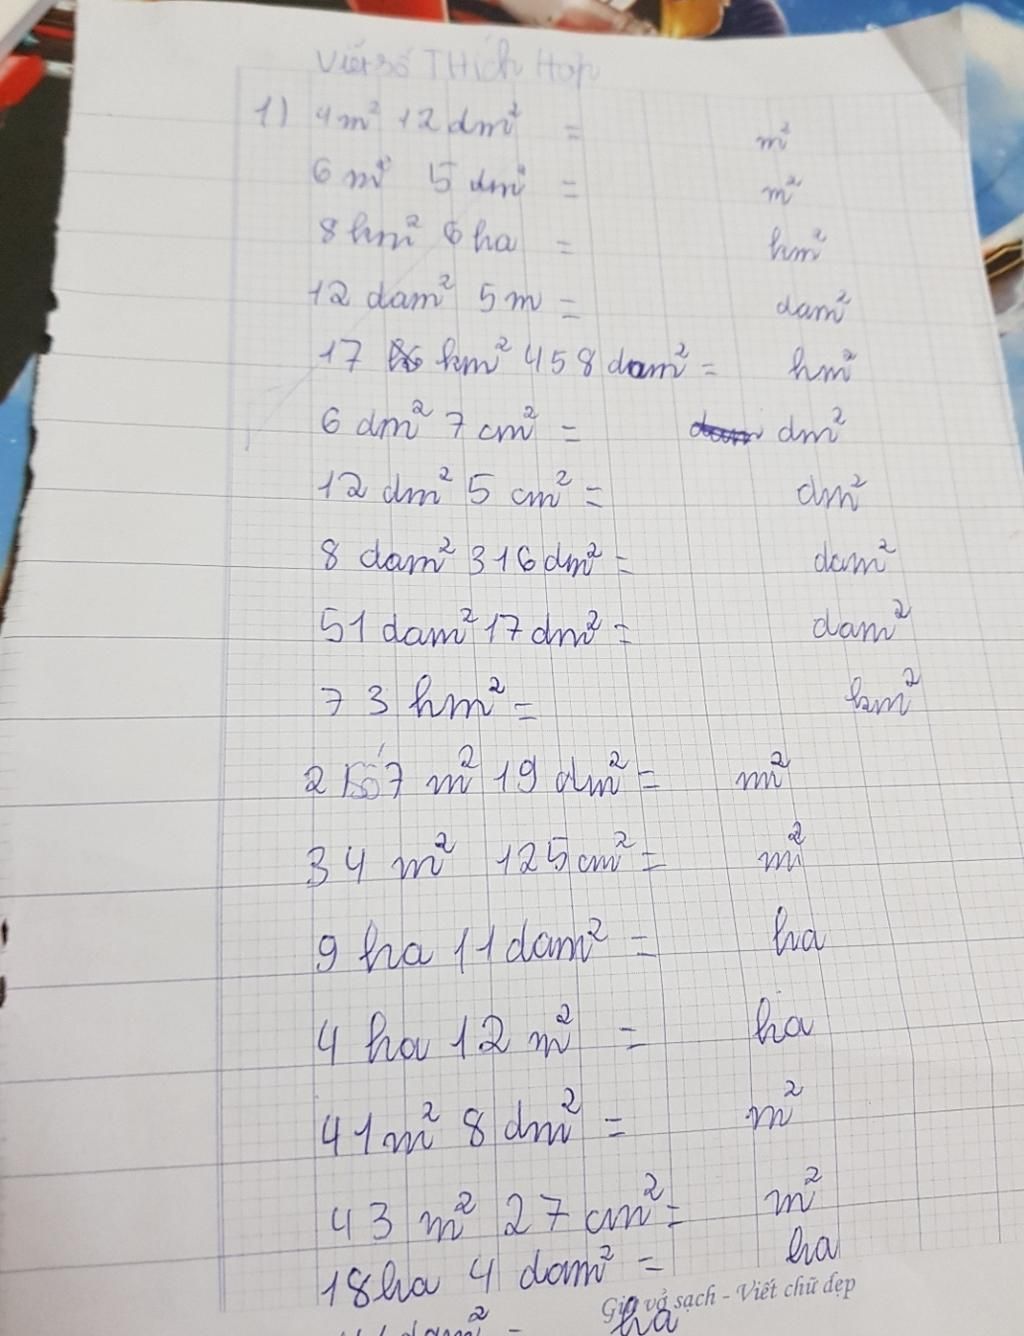 Viết số THích Hợp
1) 4m² 12dm² = m²
6 m² 5 dm² = m²
8hm² 6ha = hm²
12 dam² 5m = dam²
17 hm² 458dam² = hm²
6 dm² 7cm² = dm²
12 dm² 5 cm² = dm²
8 dam² 316dm² = dam²
51dam² 17dm² = dam²
73hm² = km²
7 m² 19 dm² = m²
34 m² 125cm² = m²
9 ha 11dam² = ha
4 ha 12 m² = ha
41m² 8 dm² = m²
43 m² 27 cm² = m²
18ha 4 dam² = ha
Giữ vở sạch - Viết chữ đẹp
dam² = ha